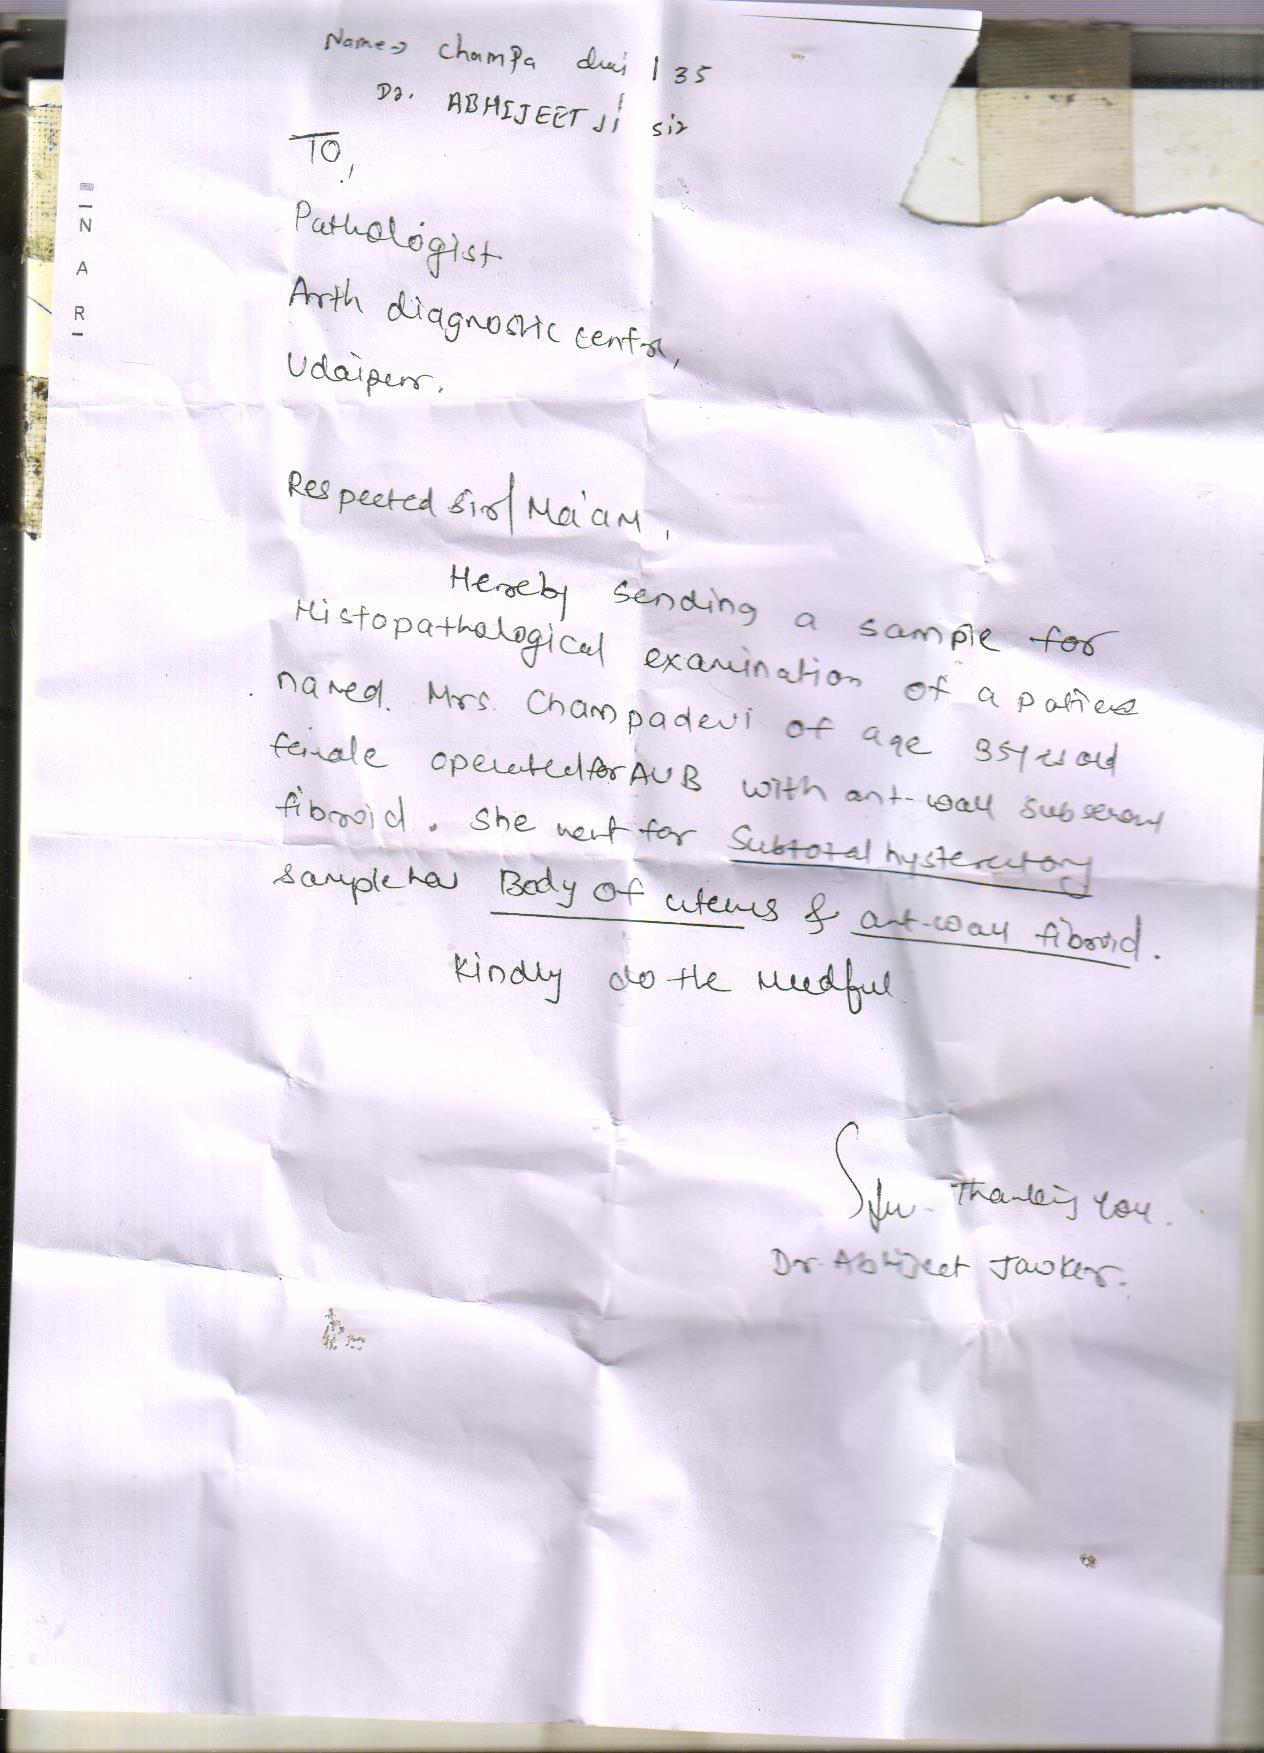 Name → Champa devi / 35
Dr. ABHIJEET Ji sir
TO,
Pathologist
Arth diagnostic centre,
Udaipur.
Respected Sir/Ma'am,
Hereby sending a sample for
Histopathological examination of a patient
named. Mrs. Champadevi of age 35yrs old
female operated for AUB with ant-wall subserosal
fibroid. She went for Subtotal hysterectomy
sample has Body of uterus & ant-wall fibroid.
Kindly do the needful
Thanking you.
Dr. Abhijeet Jawker.
N A R